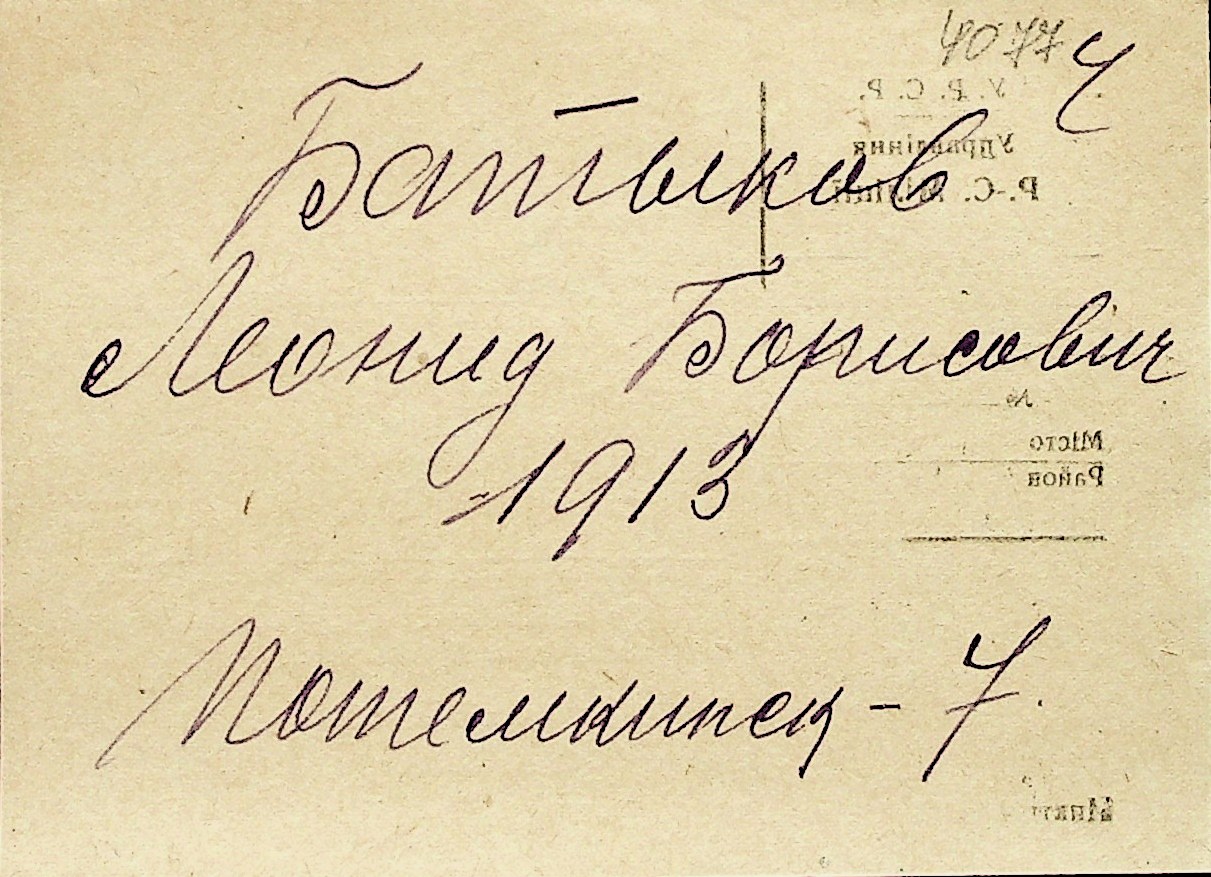 4077 4
Батыков
Леонид Борисович
1913
Потемкинск - 7.
У. Р. С. Р.
Управління
Р.-С.
№
Місто
Район